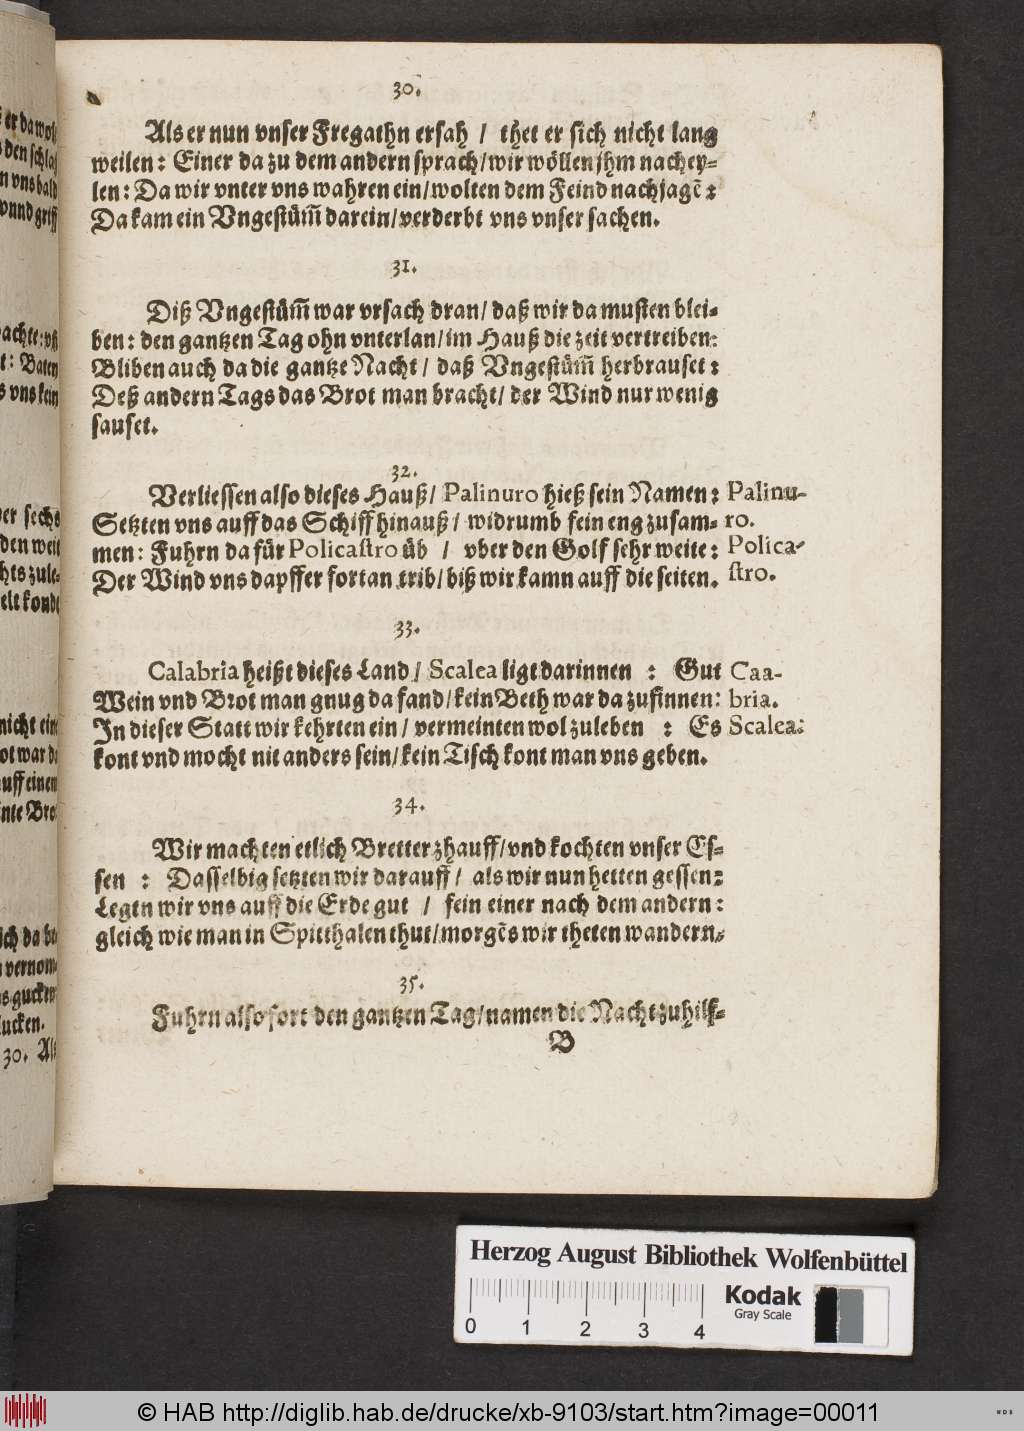 30.
Als er nun vnser Fregathn ersah / thet er sich nicht lang
weilen: Einer da zu dem andern sprach/wir wöllen jhm nachey-
len: Da wir vnter vns wahren ein/wolten dem Feind nachjagẽ:
Da kam ein Vngestüm̃ darein/verderbt vns vnser sachen.
31.
Diß Vngestüm̃ war vrsach dran/ daß wir da musten blei-
ben: den gantzen Tag ohn vnterlan/im Hauß die zeit vertreiben:
Bliben auch da die gantze Nacht / daß Vngestüm̃ herbrauset:
Deß andern Tags das Brot man bracht/ der Wind nur wenig
sauset.
32.
Verliessen also dieses Hauß/ Palinuro hieß sein Namen: Palinu-
Setzten vns auff das Schiff hinauß / widrumb fein eng zusam- ro.
men: Fuhrn da für Policastro üb / vber den Golf sehr weite: Polica-
Der Wind vns dapffer fortan trib/ biß wir kamn auff die seiten. stro.
33.
Calabria heißt dieses Land / Scalea ligt darinnen : Gut Caa-
Wein vnd Brot man gnug da fand/kein Beth war da zufinnen: bria.
In dieser Statt wir kehrten ein/ vermeinten wol zuleben : Es Scalea.
kont vnd mocht nit anders sein/kein Tisch kont man vns geben.
34.
Wir machten etlich Bretter zhauff/vnd kochten vnser Es-
sen : Dasselbig setzten wir darauff / als wir nun hetten gessen:
Legtn wir vns auff die Erde gut / fein einer nach dem andern:
gleich wie man in Spitthalen thut/morgẽs wir theten wandern.
35.
Fuhrn also fort den gantzen Tag/namen die Nacht zuhilf-
B
30. Als
Herzog August Bibliothek Wolfenbüttel
Kodak
Gray Scale
0 1 2 3 4
© HAB http://diglib.hab.de/drucke/xb-9103/start.htm?image=00011